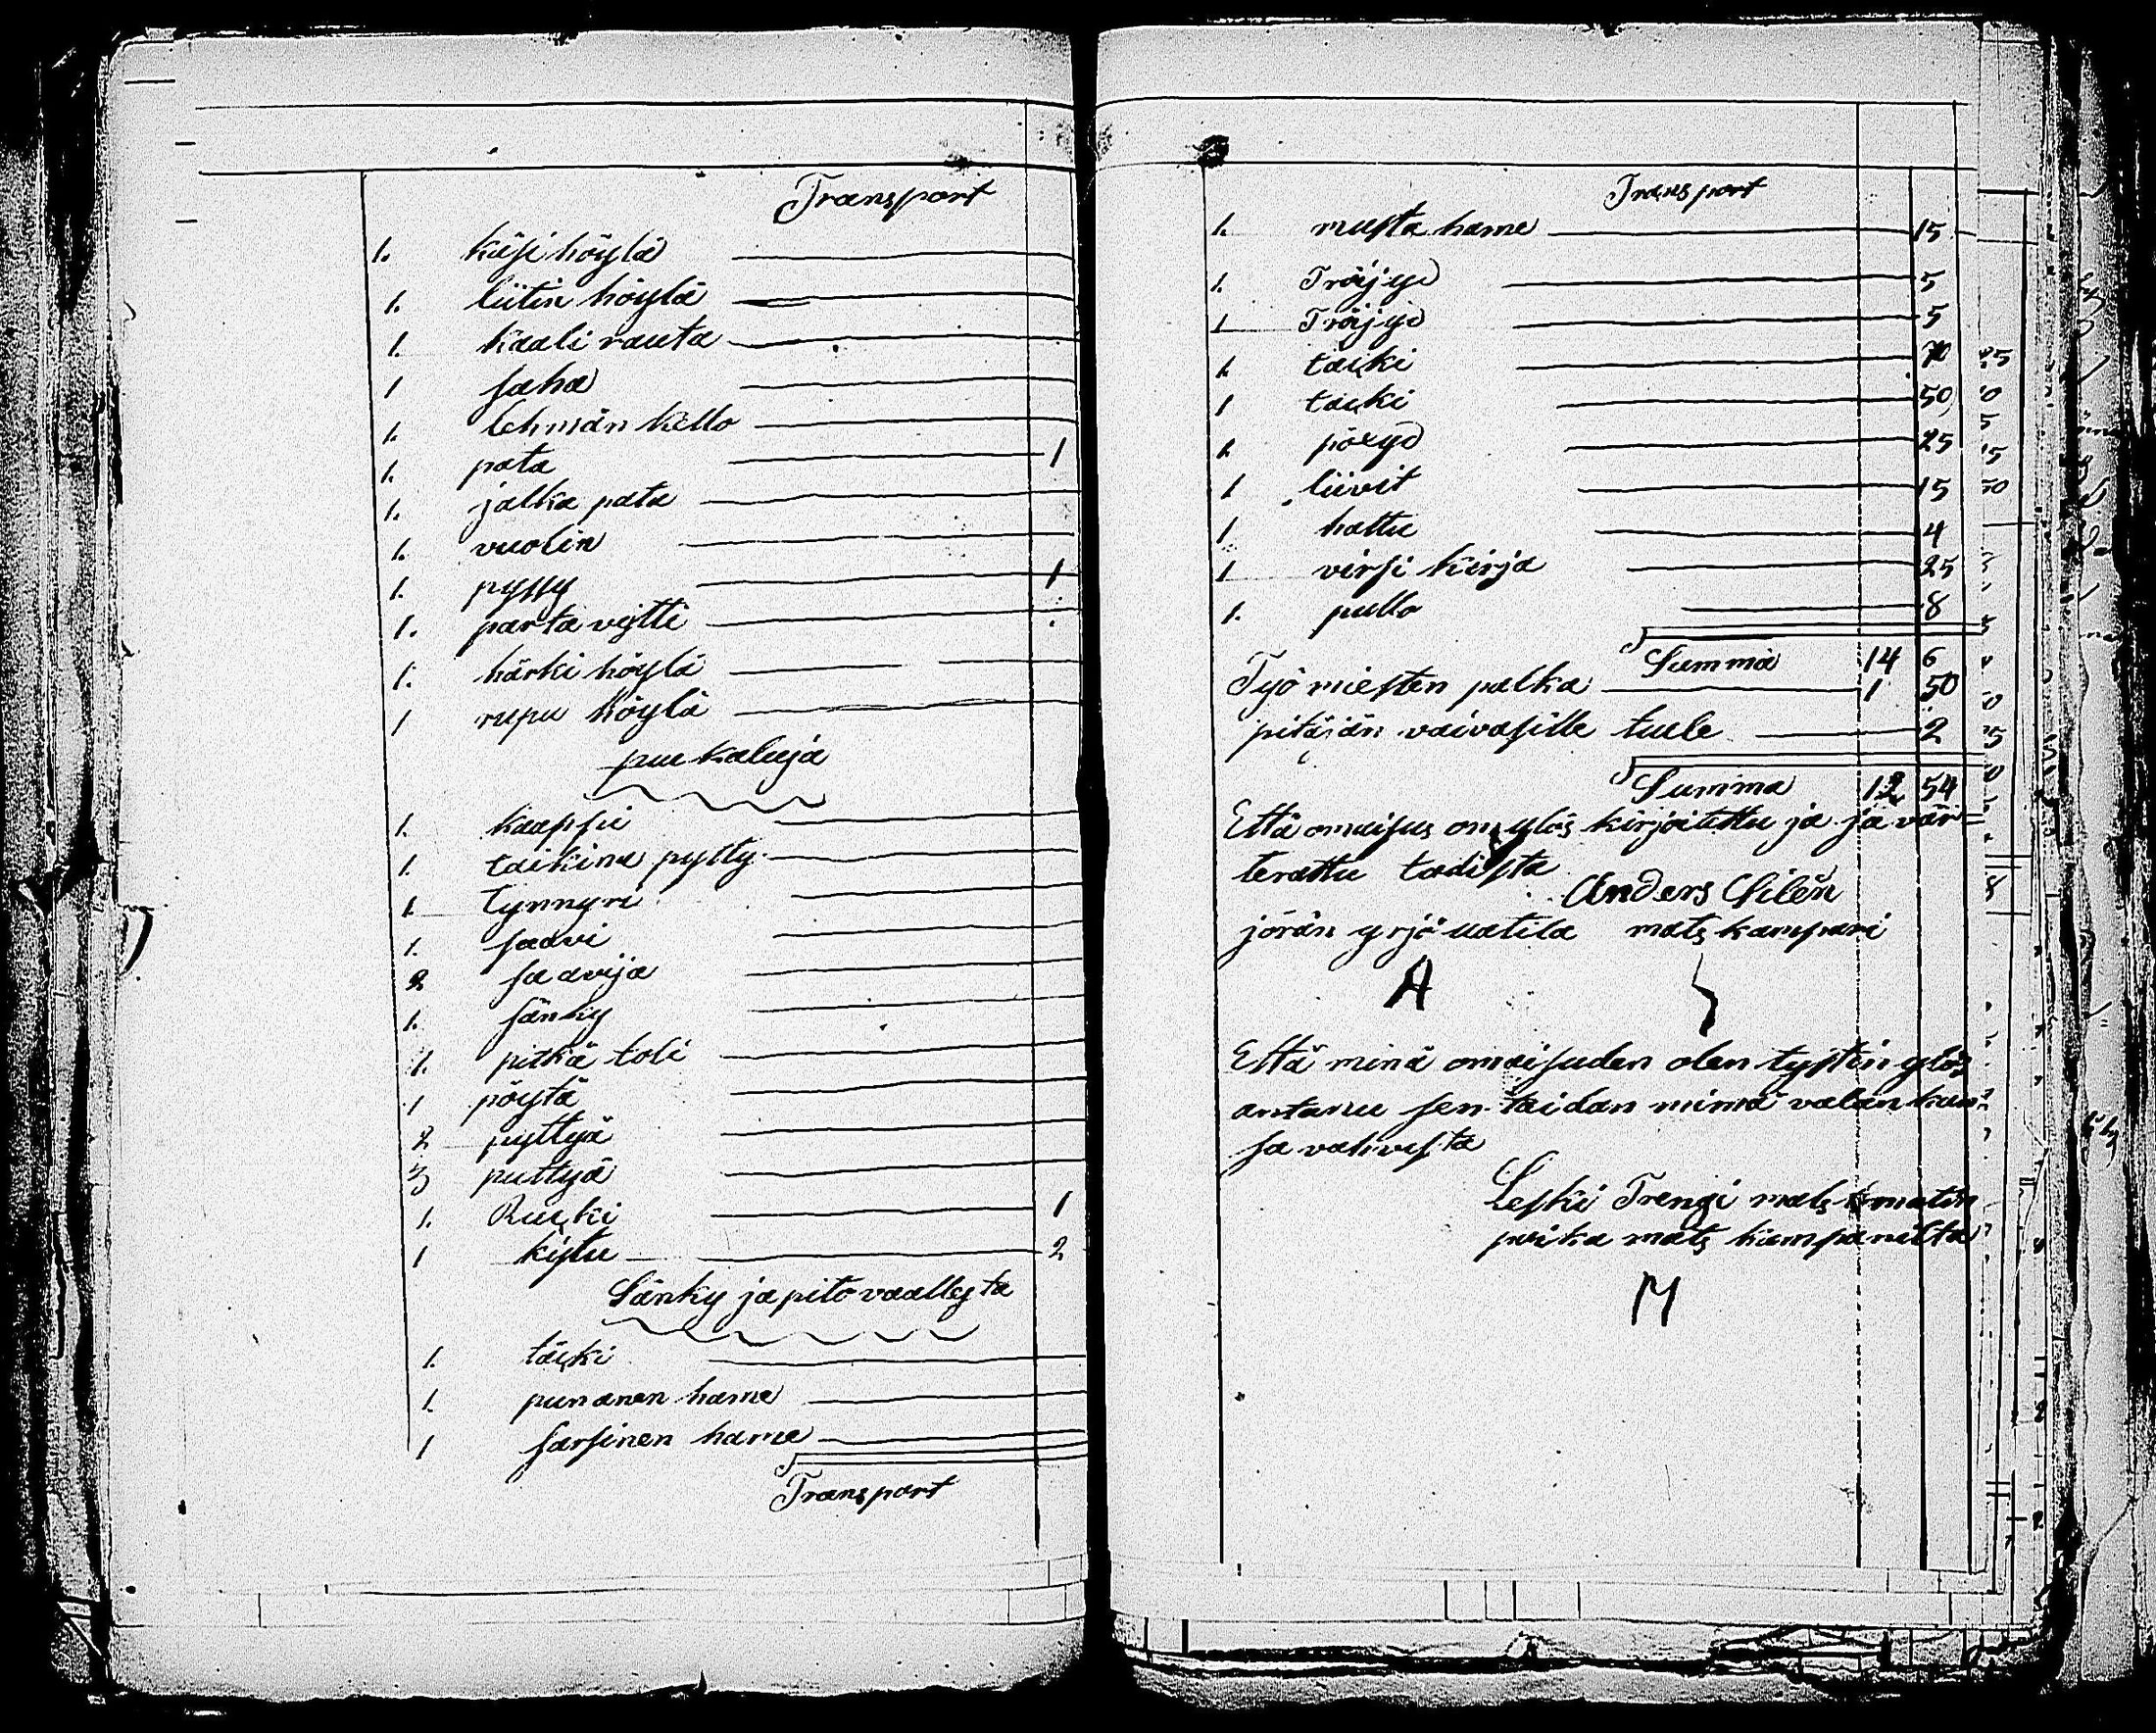 Transport
1. käsi höylä
1. liitin höylä
1. kaali rauta
1 saha
1. lehmän kello
1. pata 1
1. jalka pata
1. vuolin
1. pyssy 1
1. parta vejtti
1. härki höylä
1 rupu höylä
puu kaluja
1. kaappii
1. taikina pytty
1. Tynnyri
1. saavi
2 saavija
1. sänky
1. pitkä toli
1 pöytä
2 pyttyä
3 puttyä
1. Rucki 1
1 kistu 2
Sänky ja pito vaattesta
1. täcki
1. punanen hame
1 sarsinen hame
Transport
Transport
1. musta hame 15
1. Tröijyä 5
1 Tröijyä 5
1. täcki 70
1 täcki 50
1. pöxyä 25
1 liivit 15
1 hattu 4
1 virsi kirja 25
1. pullo 8
Summa 14 6
Työ miesten palka 1 50
pitäjän vaivasille tulle 2
Summa 12 54
Että omaisus on ylös kirjoitettu ja ja vär=
terattu todista
Anders Silén
jörän yrjö uatila mats kampari
A
Että minä omaisuden olen tystin ylös
antanu sen taidan minnä valan kan=
sa vahvista
Leski Trengi mats matin
poika mats kamparilta
M